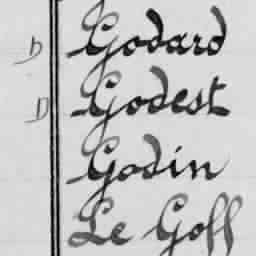 D Godard
D Godest
Godin
Le Goff